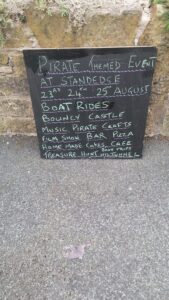 PIRATE THEMED EVENT
AT STANDEDGE
23RD 24TH 25TH AUGUST
BOAT RIDES
BOUNCY CASTLE
MUSIC PIRATE CRAFTS
FILM SHOW BAR PIZZA
HOME MADE CAKES, CAFE
TREASURE HUNT IN TUNNEL